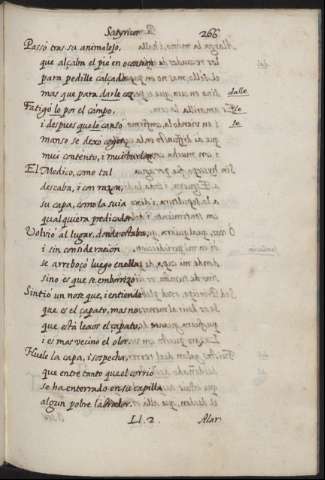 Satyricas 266
Passò tras su animalejo,
que alçaba el pie en ocasion
para pedille calçado
mas que para darle coz. dalle
Fatigó lo por el campo,
i despues que le cansó lo
manso se dexó coger,
mui contento, i mui burlon.
El Medico, como tal
descaba, i con razon,
su capa, como la suia
qualquiera predicador.
Volvio al lugar, donde estaba,
i sin consideracion
se arreboçó luego en ella
sino es que se embarró
Sintió un no se que, i entiende
que es el çapato, mas no,
que està lexos el çapato,
i es mas vecino el olor.
Huele la capa, i sospecha,
que entre tanto que el corrió
se ha enterrado en su capilla
algun pobre labrador.
Ll. 2. Alar